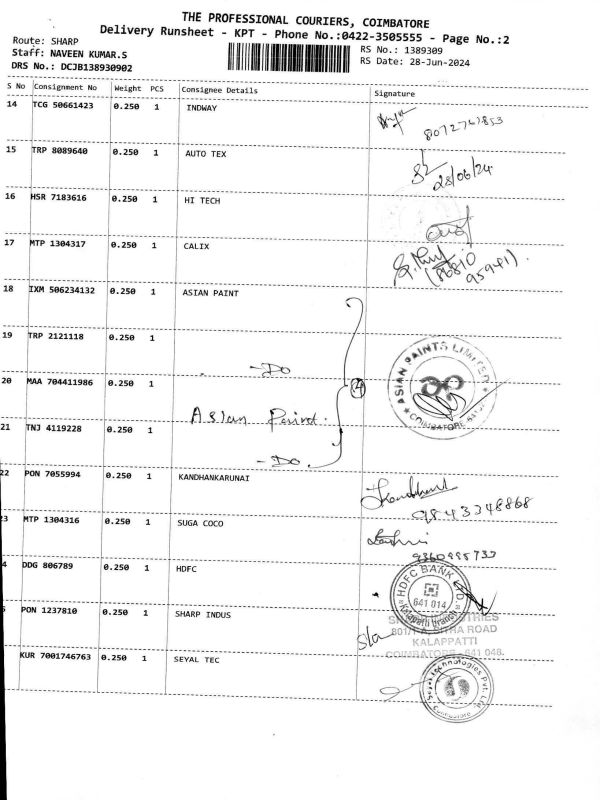 THE PROFESSIONAL COURIERS, COIMBATORE
Delivery Runsheet - KPT - Phone No.:0422-3505555 - Page No.:2
Route: SHARP
RS No.: 1389309
Staff: NAVEEN KUMAR.S
RS Date: 28-Jun-2024
DRS No.: DCJB138930902
S No Consignment No Weight PCS Consignee Details Signature
14 TCG 50661423 0.250 1 INDWAY
15 TRP 8089640 0.250 1 AUTO TEX
28/06/24
16 HSR 7183616 0.250 1 HI TECH
17 MTP 1304317 0.250 1 CALIX
(86810
95941).
18 IXM 506234132 0.250 1 ASIAN PAINT
19 TRP 2121118 0.250 1
-Do
20 MAA 704411986 0.250 1
4
ASIAN PAINTS LIMITED
COIMBATORE
Asian Paint.
21 TNJ 4119228 0.250 1
-Do.
22 PON 7055994 0.250 1 KANDHANKARUNAI
9843248868
23 MTP 1304316 0.250 1 SUGA COCO
4 DDG 806789 0.250 1 HDFC
HDFC BANK LTD.
641 014
Kalapatti Branch
PON 1237810 0.250 1 SHARP INDUS
KALAPPATTI
COIMBATORE - 641 048.
KUR 7001746763 0.250 1 SEYAL TEC
Seyal Technologies Pvt. Ltd.
Coimbatore